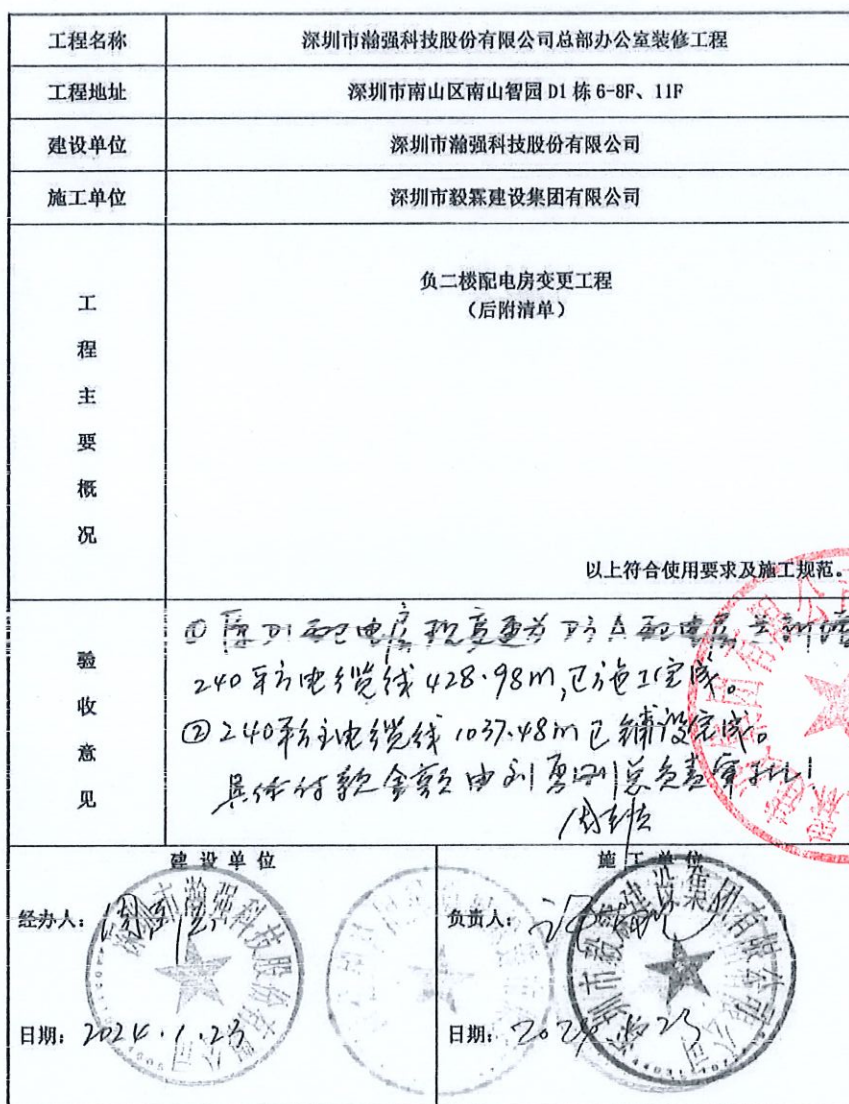 工程名称 深圳市瀚强科技股份有限公司总部办公室装修工程
工程地址 深圳市南山区南山智园 D1 栋 6-8F、11F
建设单位 深圳市瀚强科技股份有限公司
施工单位 深圳市毅霖建设集团有限公司
工程主要概况
负二楼配电房变更工程
（后附清单）
以上符合使用要求及施工规范。
验收意见
①原D1配电房现变更为 配电房
240平方电缆线428.98m，已施工完成。
②240平方主电缆线1037.48m已铺设完成。
具体付款金额由刘 总负责审批！
建设单位
经办人：
日期：2024.1.23
深圳市瀚强科技股份有限公司
施工单位
负责人：
日期：2024. 23
深圳市毅霖建设集团有限公司